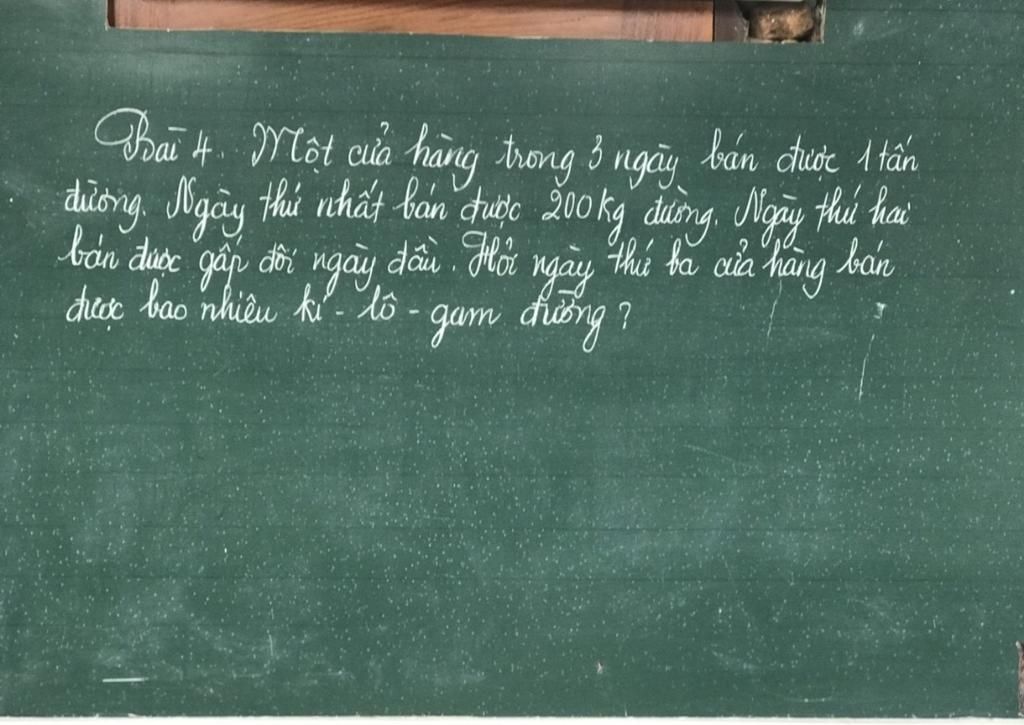 Bài 4. Một cửa hàng trong 3 ngày bán được 1 tấn
đường. Ngày thứ nhất bán được 200kg đường. Ngày thứ hai
bán được gấp đôi ngày đầu. Hỏi ngày thứ ba cửa hàng bán
được bao nhiêu ki - lô - gam đường ?